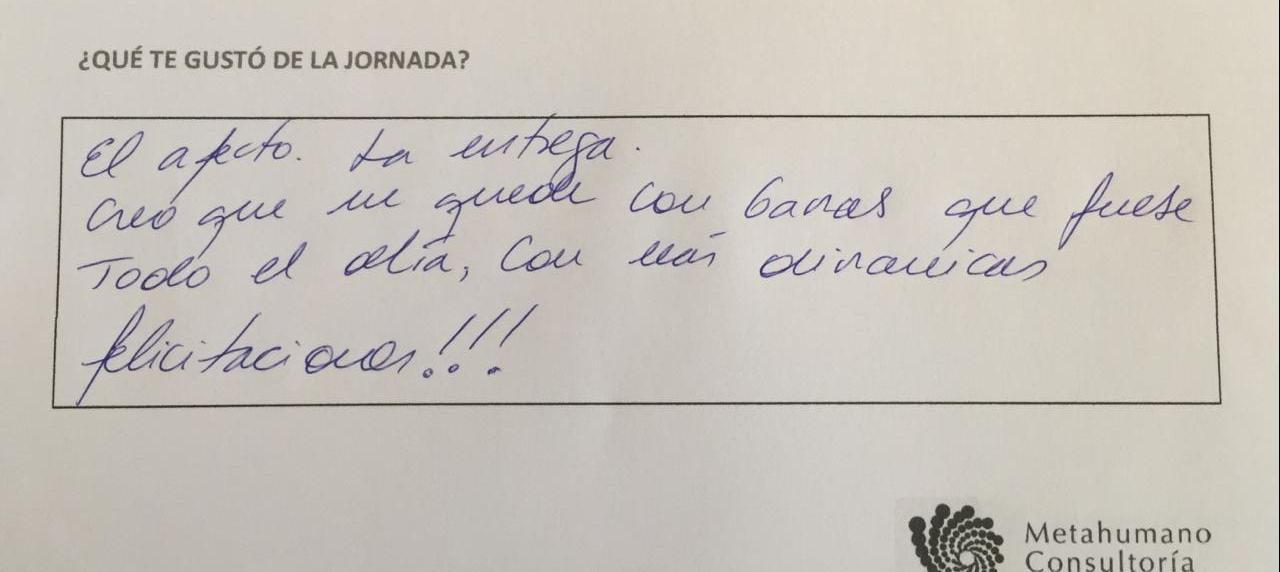 ¿QUÉ TE GUSTÓ DE LA JORNADA?
El afecto. La entrega.
Creo que me quede con Ganas que fuese
Todo el día, Con más dinamicas
felicitaciones!!!
Metahumano
Consultoría